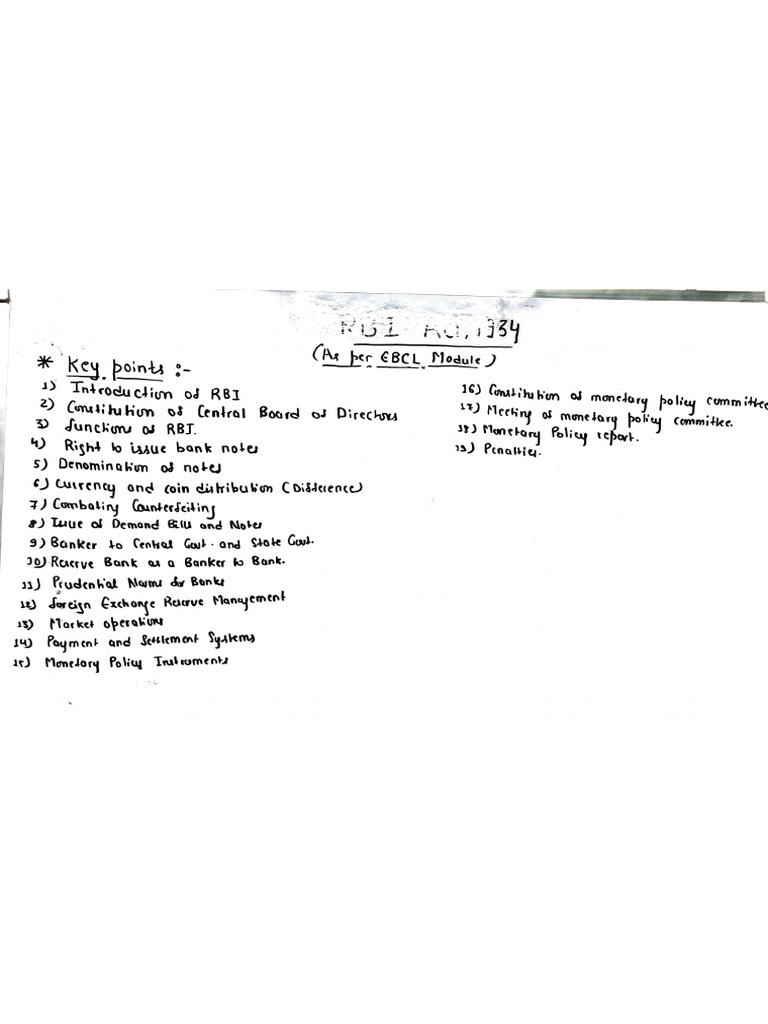 RBI Act, 1934
(As per EBCL Module)
* Key points :-
1) Introduction of RBI
2) Constitution of Central Board of Directors
3) functions of RBI.
4) Right to issue bank notes
5) Denomination of notes
6) Currency and coin distribution (Difference)
7) Combating Counterfeiting
8) Issue of Demand Bills and Notes
9) Banker to Central Govt. and State Govt.
10) Reserve Bank as a Banker to Bank.
11) Prudential Norms for Banks
12) foreign Exchange Reserve Management
13) Market operations
14) Payment and Settlement Systems
15) Monetary Policy Instruments
16) Constitution of monetary policy committee
17) Meeting of monetary policy committee.
18) Monetary Policy report.
19) Penalties.